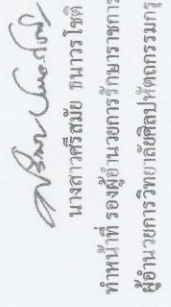 นางสาวศรีสมัย ธนาวรโชติ
ทำหน้าที่ รองผู้อำนวยการรักษาราชการ
ผู้อำนวยการวิทยาลัยศิลปหัตถกรรมกรุ